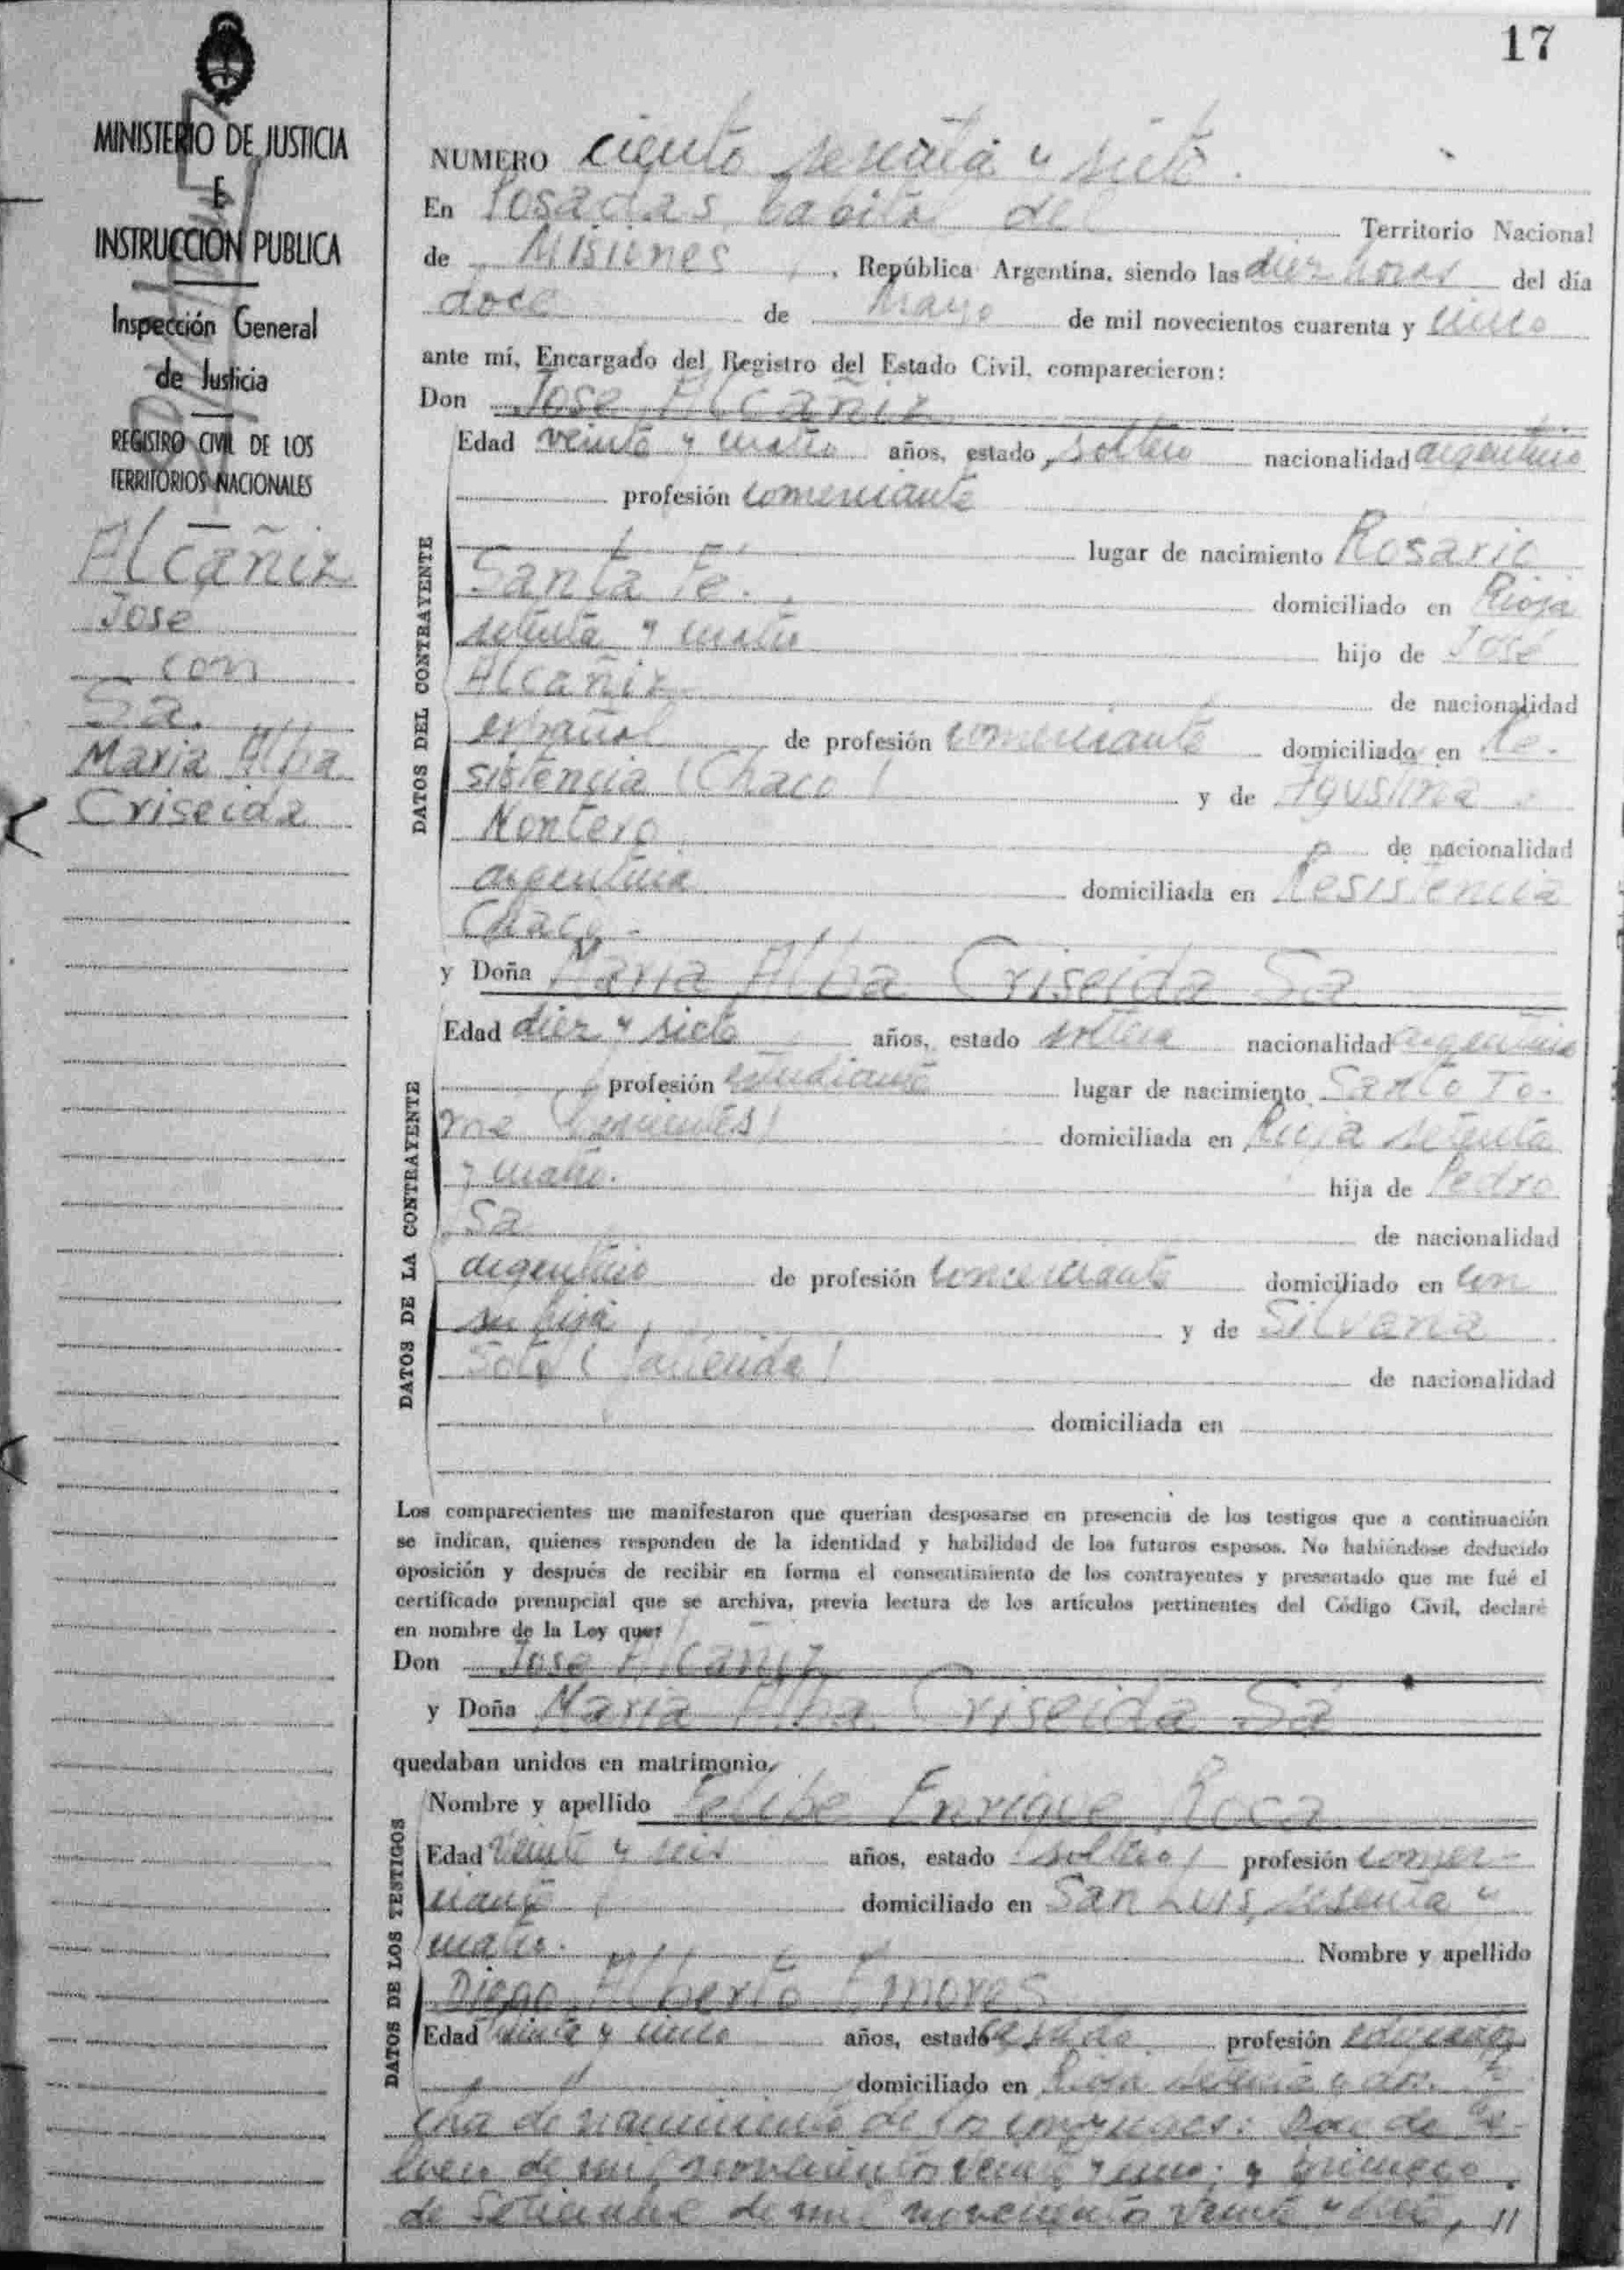 17
MINISTERIO DE JUSTICIA
E
INSTRUCCIÓN PUBLICA
Inspección General
de Justicia
REGISTRO CIVIL DE LOS
TERRITORIOS NACIONALES
Alcañiz
José
con
Sa.
Maria Alba
Criseida
NUMERO ciento y siete.
En Posadas, Capital del Territorio Nacional
de Misiones, República Argentina, siendo las diez horas del día
doce de Mayo de mil novecientos cuarenta y cinco
ante mí, Encargado del Registro del Estado Civil, comparecieron:
Don José Alcañiz
DATOS DEL CONTRAYENTE
Edad veinte y cuatro años, estado soltero nacionalidad argentino
profesión comerciante
lugar de nacimiento Rosario
Santa Fé. domiciliado en Rioja
setenta y cuatro hijo de José
Alcañiz de nacionalidad
español de profesión comerciante domiciliado en Re-
sistencia (Chaco) y de Agustina
Montero de nacionalidad
argentina domiciliada en Resistencia
Chaco -
y Doña Maria Alba Criseida Sa
DATOS DE LA CONTRAYENTE
Edad diez y siete años, estado soltera nacionalidad argentina
profesión estudiante lugar de nacimiento Santo To-
me (Corrientes) domiciliada en Rioja setenta
y cuatro. hija de Pedro
Sa de nacionalidad
argentino de profesión comerciante domiciliado en con
su hija y de Silvana
Soto (fallecida) de nacionalidad
domiciliada en
Los comparecientes me manifestaron que querían desposarse en presencia de los testigos que a continuación
se indican, quienes responden de la identidad y habilidad de los futuros esposos. No habiéndose deducido
oposición y después de recibir en forma el consentimiento de los contrayentes y presentado que me fué el
certificado prenupcial que se archiva, previa lectura de los artículos pertinentes del Código Civil, declaré
en nombre de la Ley que:
Don José Alcañiz
y Doña Maria Alba Criseida Sá
quedaban unidos en matrimonio,
DATOS DE LOS TESTIGOS
Nombre y apellido Felipe Enrique Roca
Edad veinte y seis años, estado soltero, profesión comer-
ciante domiciliado en San Luis, sesenta y
cuatro. Nombre y apellido
Diego Alberto Amores
Edad treinta y cinco años, estado casado profesión
domiciliado en Rioja setenta y dos. Fe-
cha de nacimiento de los conyuges: Doce de Fe-
brero de mil novecientos veinte y uno; y primero
de Setiembre de mil novecientos veinte y siete, //